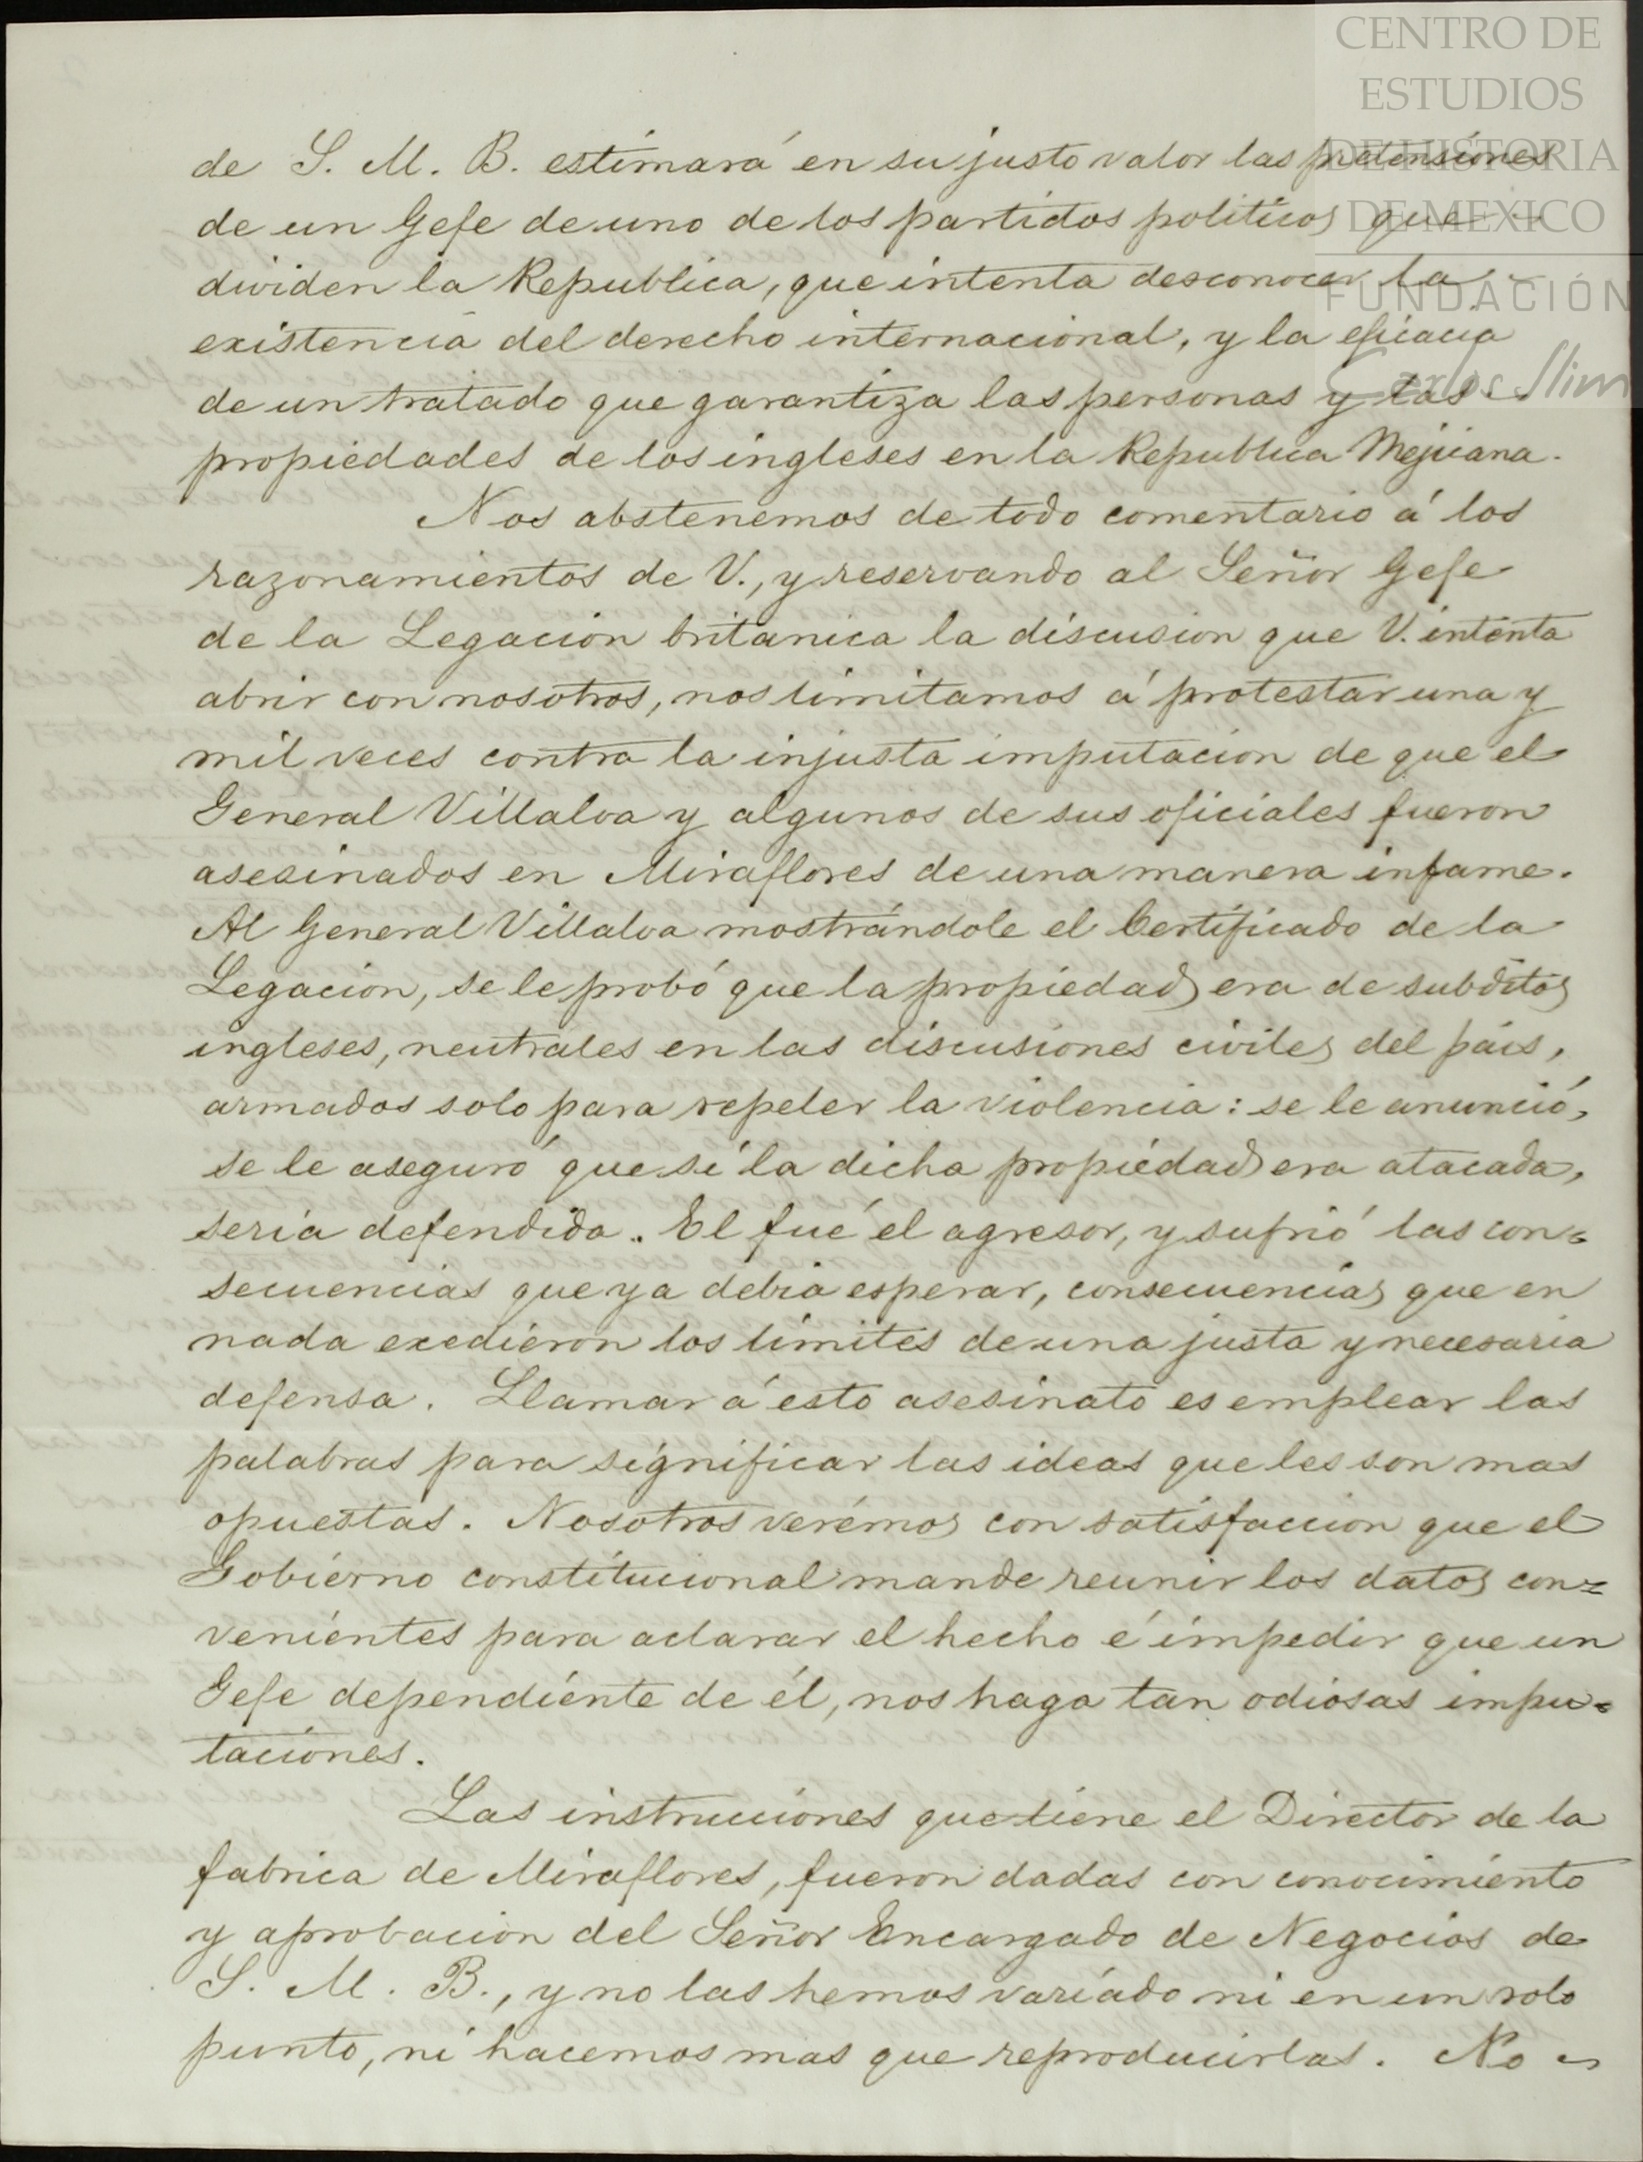 CENTRO DE
ESTUDIOS
DE HISTORIA
DE MEXICO
FUNDACIÓN
Carlos Slim
de S. M. B. estimará en su justo valor las pretensiones
de un Gefe de uno de los partidos politicos que
dividen la Republica, que intenta desconocer la
existencia del derecho internacional, y la eficacia
de un tratado que garantiza las personas y las
propiedades de los ingleses en la Republica Mejicana.
Nos abstenemos de todo comentario á los
razonamientos de V., y reservando al Señor Gefe
de la Legacion britanica la discusion que V. intenta
abrir con nosotros, nos limitamos á protestar una y
mil veces contra la injusta imputacion de que el
General Villalva y algunos de sus oficiales fueron
asesinados en Miraflores de una manera infame.
Al General Villalva mostrándole el Certificado de la
Legacion, se le probó que la propiedad era de subditos
ingleses, neutrales en las discusiones civiles del pais,
armados solo para repeler la violencia: se le anunció,
se le aseguró que si la dicha propiedad era atacada,
seria defendida. El fué el agresor, y sufrió las con=
secuencias que ya debia esperar, consecuencias que en
nada exedieron los limites de una justa y necesaria
defensa. Llamar á esto asesinato es emplear las
palabras para significar las ideas que les son mas
opuestas. Nosotros verémos con satisfaccion que el
Gobierno constitucional mande reunir los datos con=
venientes para aclarar el hecho é impedir que un
Gefe dependiente de él, nos haga tan odiosas impu=
taciones.
Las instrucciones que tiene el Director de la
fabrica de Miraflores, fueron dadas con conocimiento
y aprobacion del Señor Encargado de Negocios de
S. M. B., y no las hemos variado ni en un solo
punto, ni hacemos mas que reproducirlas. No